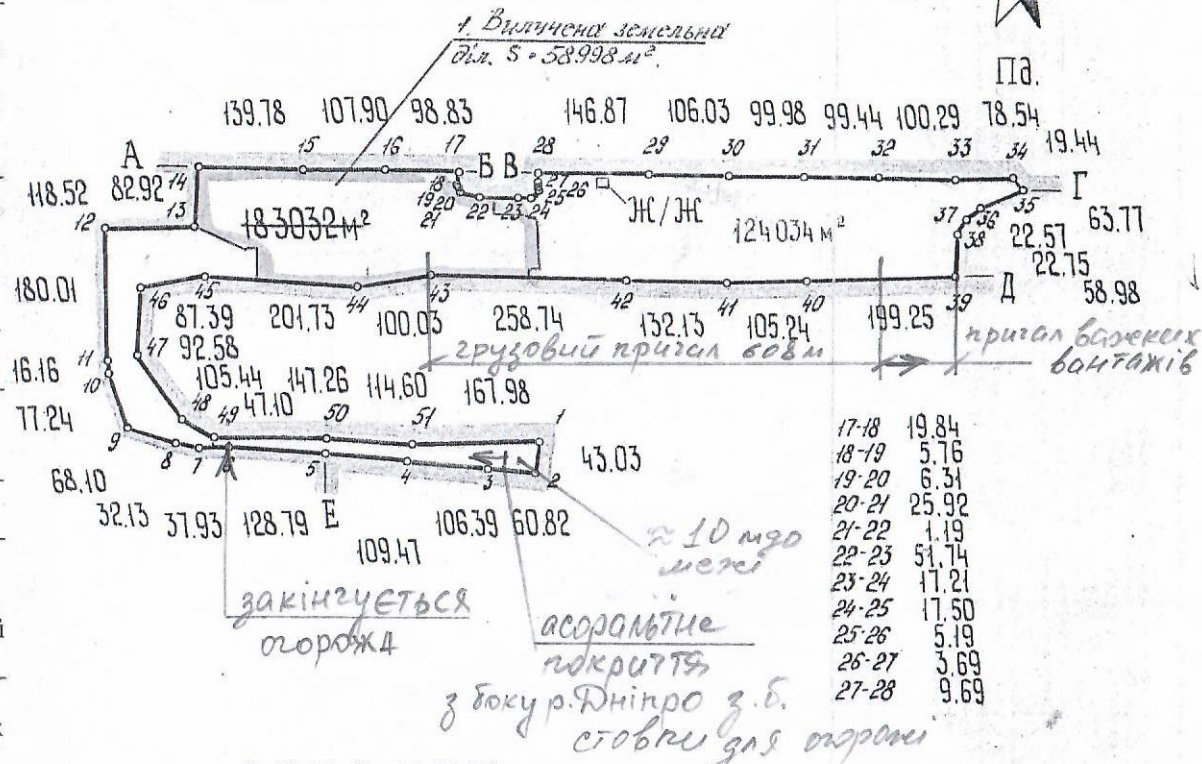 1. Вилучена земельна
діл. S = 58998 м².
Пд.
139.78 107.90 98.83 146.87 106.03 99.98 99.44 100.29 78.54
19.44
А 14 15 16 17 Б В 28 29 30 31 32 33 34
118.52 82.92
12 13
18
19 20
21 22 23 24
25 26
27
Ж/Ж
35 Г
36
37
38
63.77
22.57
22.75
58.98
183032 м²
124034 м²
180.01
46 45 44 43 42 41 40 39 Д
87.39 201.73 100.03 258.74 132.13 105.24 199.25
грузовий причал 608 м
причал важких
вантажів
47 92.58
11
16.16
10
77.24
105.44 147.26 114.60 167.98
48 49 47.10 50 51 1
9 8 7 6 5 4 3 2
43.03
68.10
32.13
37.93 128.79 Е 106.39 60.82
109.47
≈ 10 м до
межі
закінчується
огорожа
асфальтне
покриття
з боку р. Дніпро з.б.
стовпи для огорожі
17-18 19.84
18-19 5.76
19-20 6.31
20-21 25.92
21-22 1.19
22-23 51.74
23-24 17.21
24-25 17.50
25-26 5.19
26-27 3.69
27-28 9.69